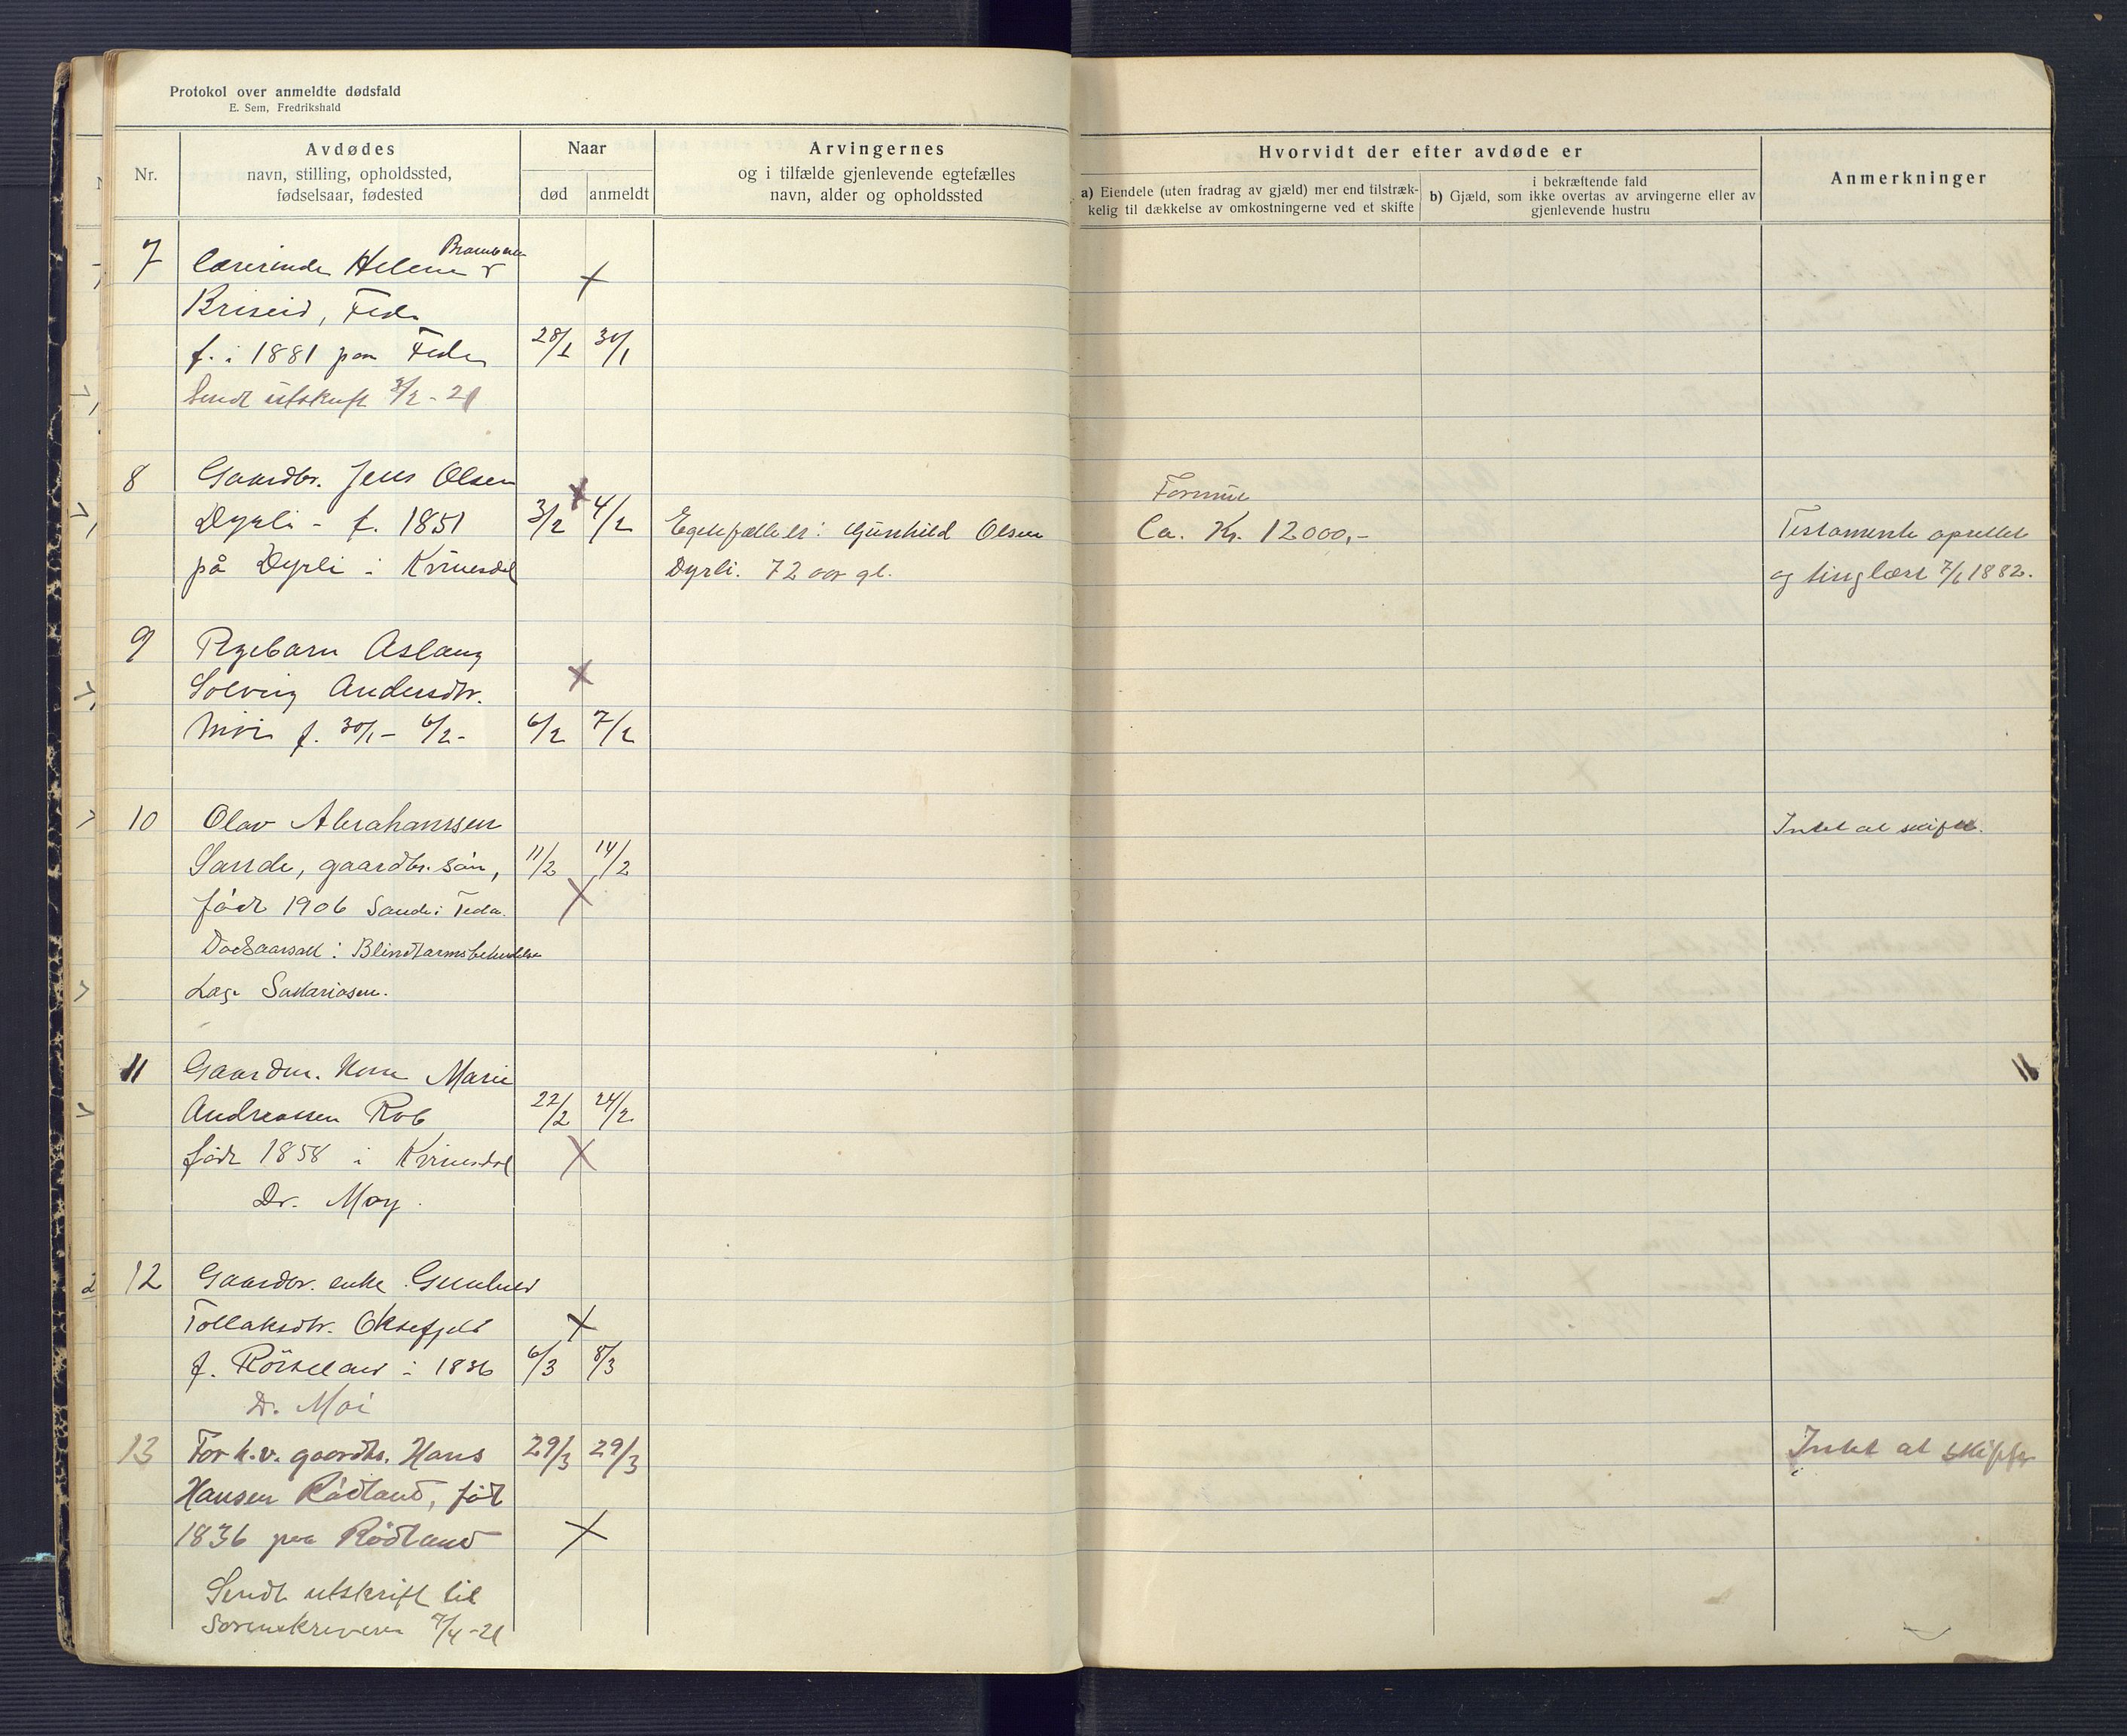 Protokol over anmeldte dødsfald
E. Sem, Fredrikshald
Nr.
Avdødes
navn, stilling, opholdssted,
fødselsaar, fødested
Naar
død
anmeldt
Arvingernes
og i tilfælde gjenlevende egtefælles
navn, alder og opholdssted
Hvorvidt der efter avdøde er
a) Eiendele (uten fradrag av gjæld) mer end tilstræk-
kelig til dækkelse av omkostningerne ved et skifte
i bekræftende fald
b) Gjæld, som ikke overtas av arvingerne eller av
gjenlevende hustru
Anmerkninger
7 Lærerinde Helene
Briseid, Feda
f. i 1881 paa Feda 28/1 30/1
Sendt utskrift 3/2 - 21
8 Gaardbr. Jens Olsen
Dyrli - f. 1851 3/2 4/2 Egtefælle er: Gunhild Olsen
på Dyrli i Kvinesdal Dyrli. 72 aar gl.
Formue
Ca. Kr. 12000,-
Testamente oprettet
og tinglæst 7/6 1882.
9 Pigebarn Aslaug
Solveig Andersdtr.
Moi f. 30/1 - 6/2 - 6/2 7/2
10 Olav Abrahamssen Intet at skifte.
Sande, gaardbr. søn, 11/2 14/2
født 1906 Sande i Feda.
Dødsaarsak: Blindtarmsbetændelse
Læge Sakariasen.
11 Gaardm. Kone Marie
Andreassen Rob 22/2 24/2
født 1858 i Kvinesdal
Dr. Moy.
11
12 Gaardbr. enke Gunhild
Tollaksdtr. Oksefjeld
f. Röiseland i 1836 6/3 8/3
Dr. Moi
13 For h.v. gaardbr. Hans 29/3 29/3 Intet at skifte
Hansen Rödland, født
1836 paa Rödland
Sendt utskrift til
Sorenskriveren 7/4 - 21